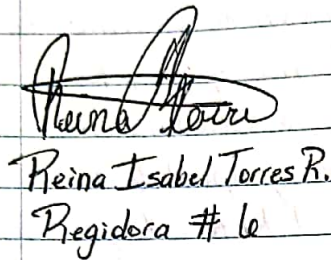 Reina Torres
Reina Isabel Torres R.
Regidora # 6